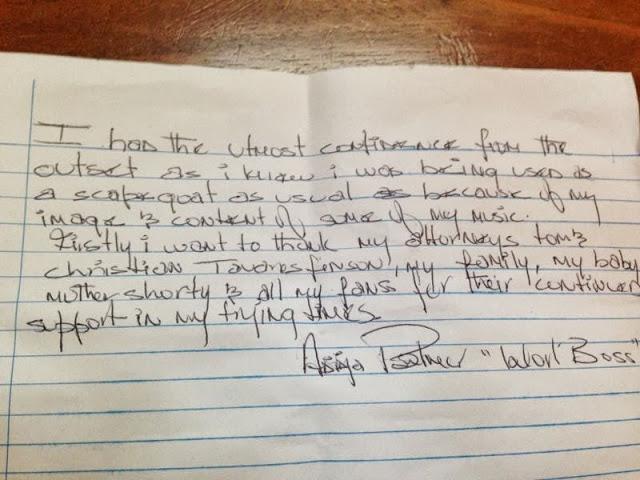 I had the utmost confidence from the
outset as i knew i was being used as
a scapegoat as usual as because of my
image & content of some of my music.
Firstly i want to thank my attorneys tom &
christian Tavares finson, my family, my baby
mother shorty & all my fans for their continued
support in my trying times
Adija Palmer "Worl' Boss"